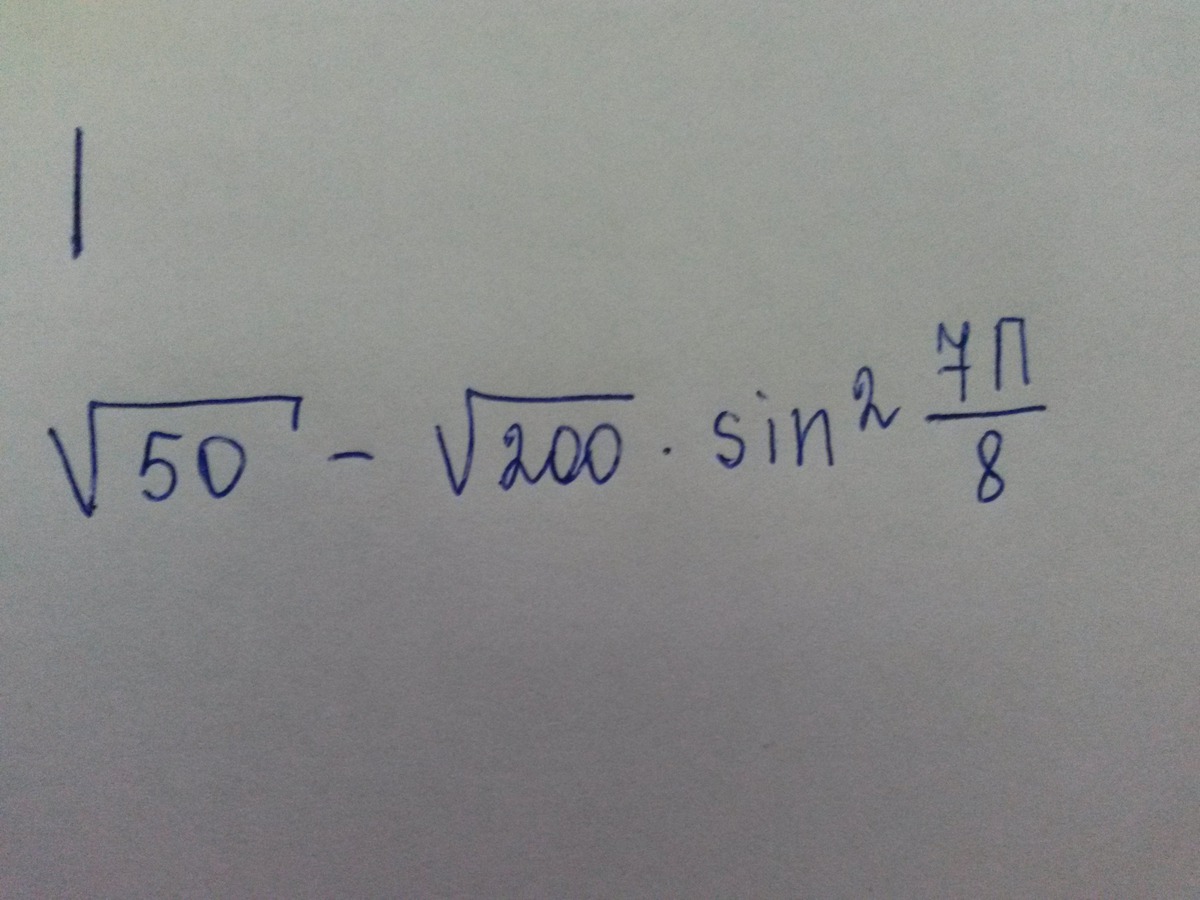 |
√50 - √200 · sin² 7П/8